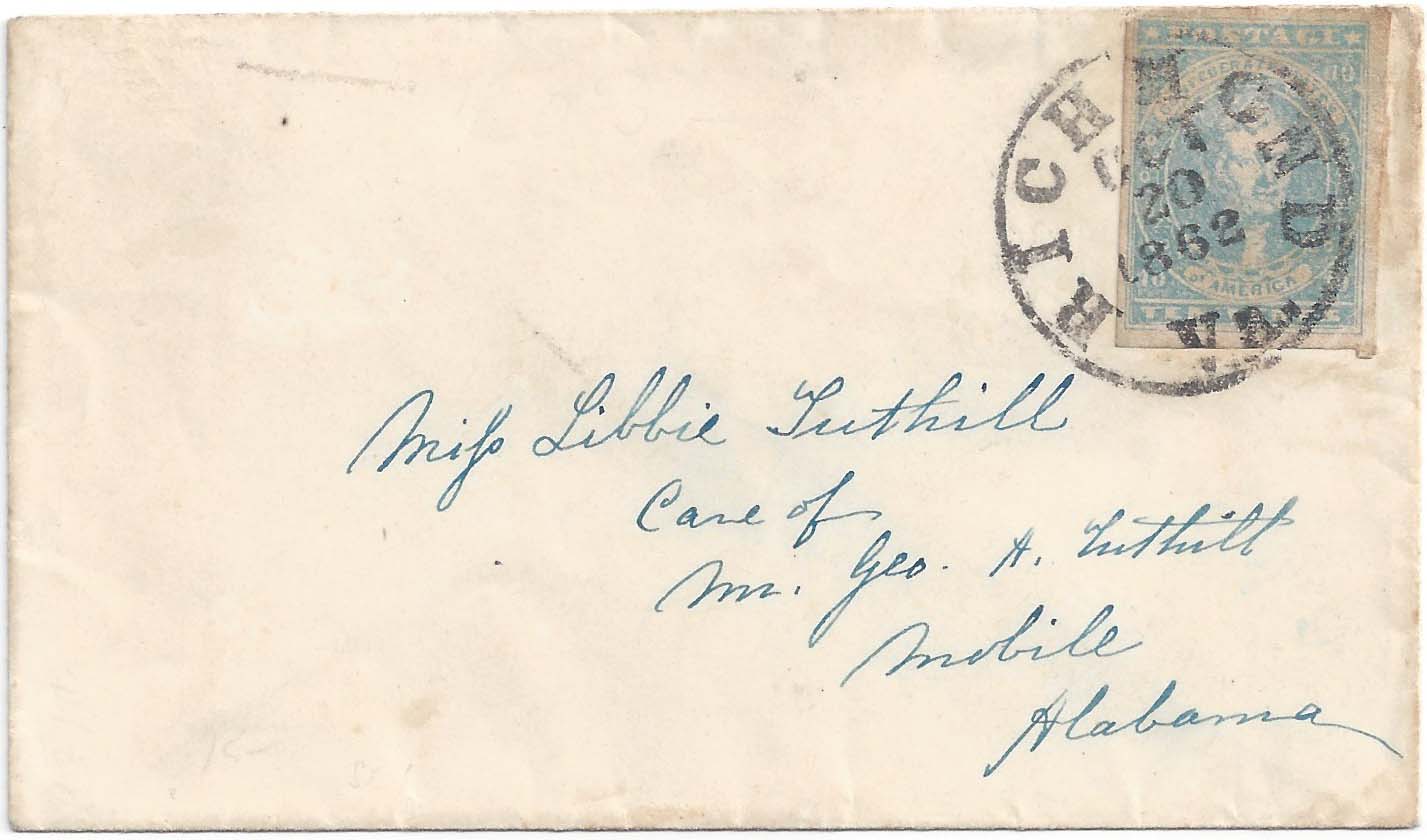 POSTAGE
CONFEDERATE STATES
OF AMERICA
10 10
TEN CENTS
RICHMOND
OCT
20
1862
VA.
Miss Libbie Tuthill
Care of
Mr. Geo. A. Tuthill
Mobile
Alabama